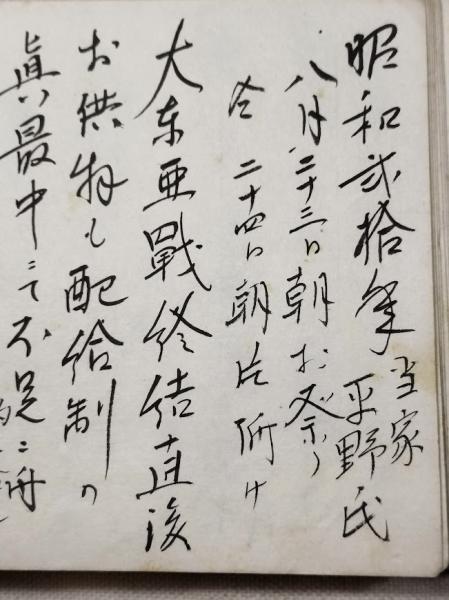 昭和弐拾年 当家
平野氏
八月二十三日朝お祭り
仝 二十四日朝片附け
大东亜戰終结直後
お供物も配給制の
真最中ニて不足ニ